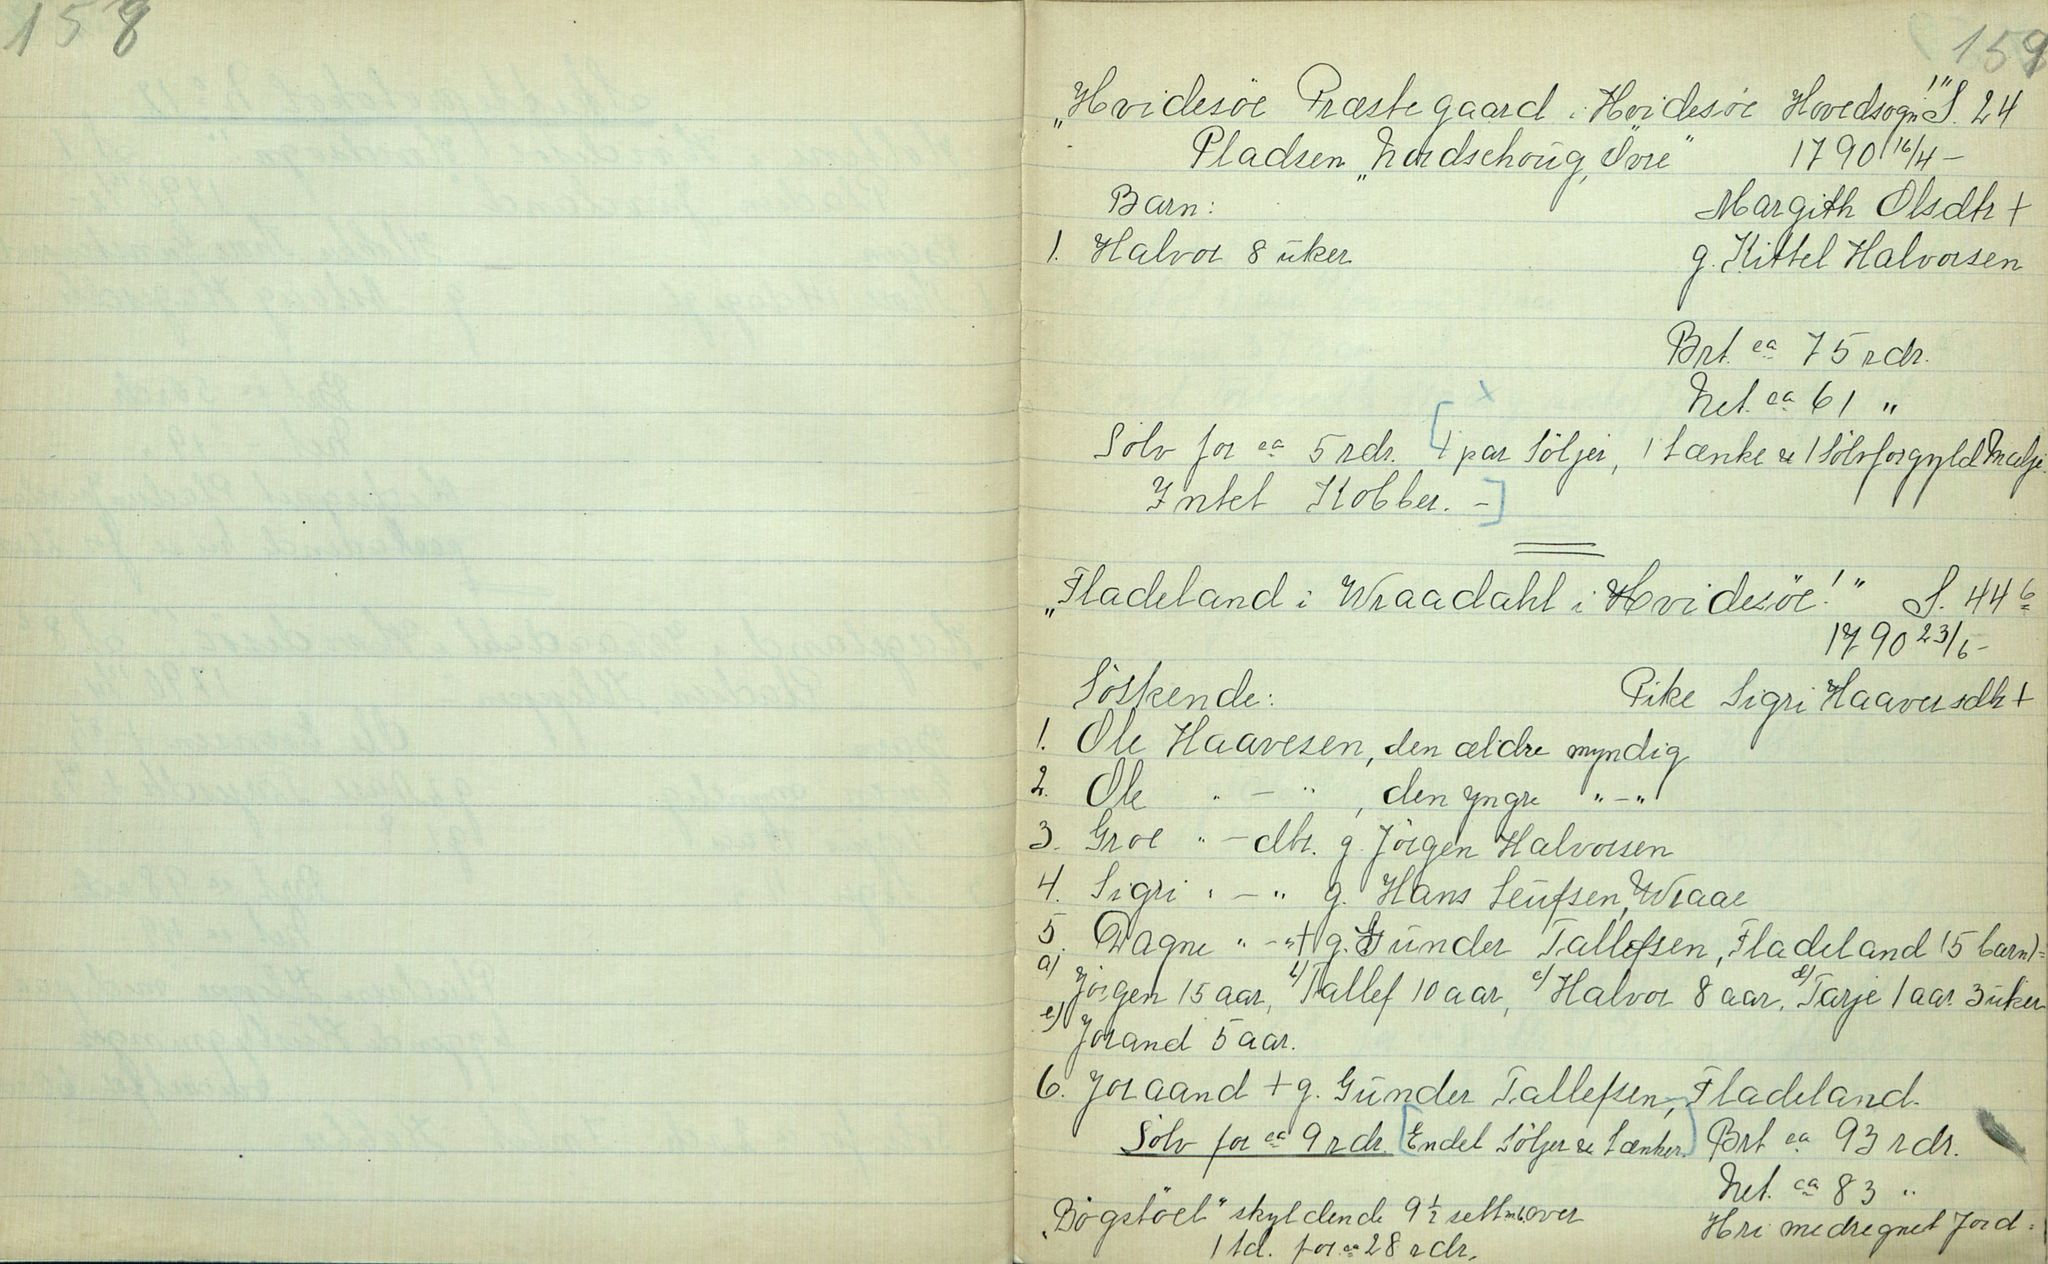 158
159
„Hvidesöe Præstegaard i Hvidesöe Hovedsogn!" S. 24
Pladsen „Nordschoug, Övre" 1790 16/4 –
Barn: Margith Olsdtr +
1. Halvor 8 uker g. Kittel Halvorsen
Brt. ca 75 rdr.
Net. ca 61 „
x
Sölv for ca 5 rdr. [4 par Söljer, 1 Lænke & 1 Sölvforgyld Malje.
Intet Kobber. –]
„Fladeland i Wraadahl i Hvidesöe!" S. 44 b
1790 23/6 –
Söskende: Pike Sigri Haaversdtr +
1. Ole Haavesen, den ældre myndig
2. Ole " – " , den yngre " – "
3. Groe " – dtr. g. Jörgen Halvorsen
4. Sigri " – " g. Hans Leufsen, Wraae
5. Dagne " – " + g. Gunder Tallefsen, Fladeland (5 barn) =
a) Jörgen 15 aar, b) Tallef 10 aar, c) Halvor 8 aar, d) Tarje 1 aar 3 uker
e) Jorand 5 aar.
6. Joraand + g. Gunder Tallefsen, Fladeland.
Sölv for ca 9 rdr. [Endel Söljer & Lænker.] Brt ca 93 rdr.
Net. ca 83 "
„Bögstöel" skyldende 9 1/2 settm over Hri medregnet Jord =
1 td. for ca 28 rdr.